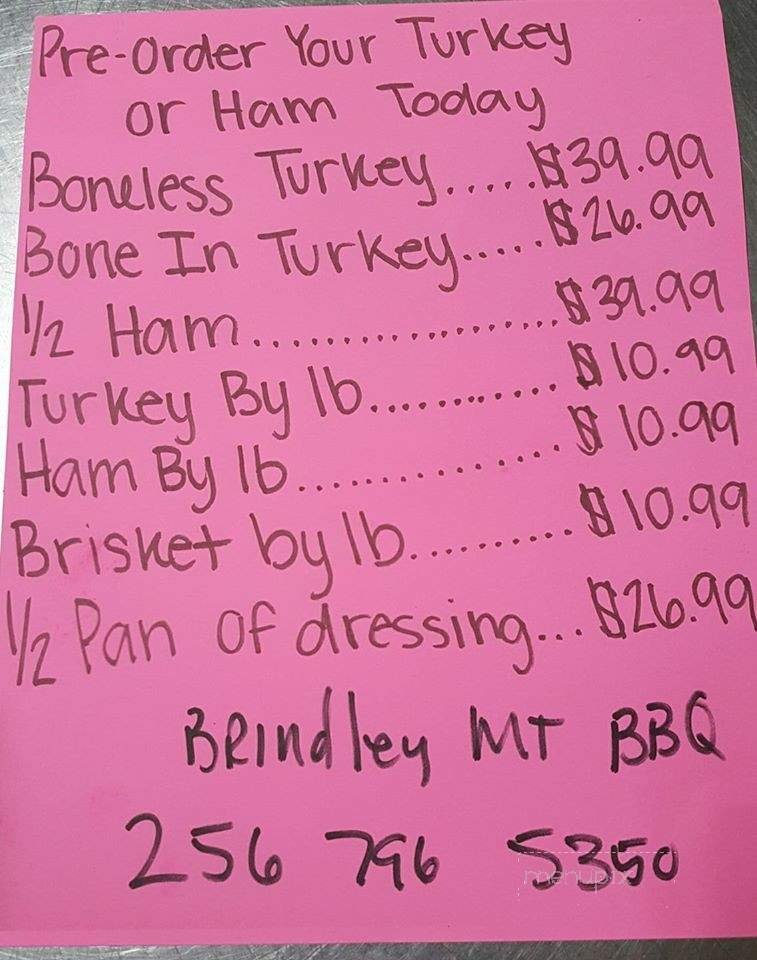 Pre-Order Your Turkey
or Ham Today
Boneless Turkey.....$39.99
Bone In Turkey.....$26.99
1/2 Ham...................$39.99
Turkey By lb...........$10.99
Ham By lb..............$10.99
Brisket by lb..........$10.99
1/2 Pan of dressing...$26.99
Brindley MT BBQ
256 796 5350
menupix